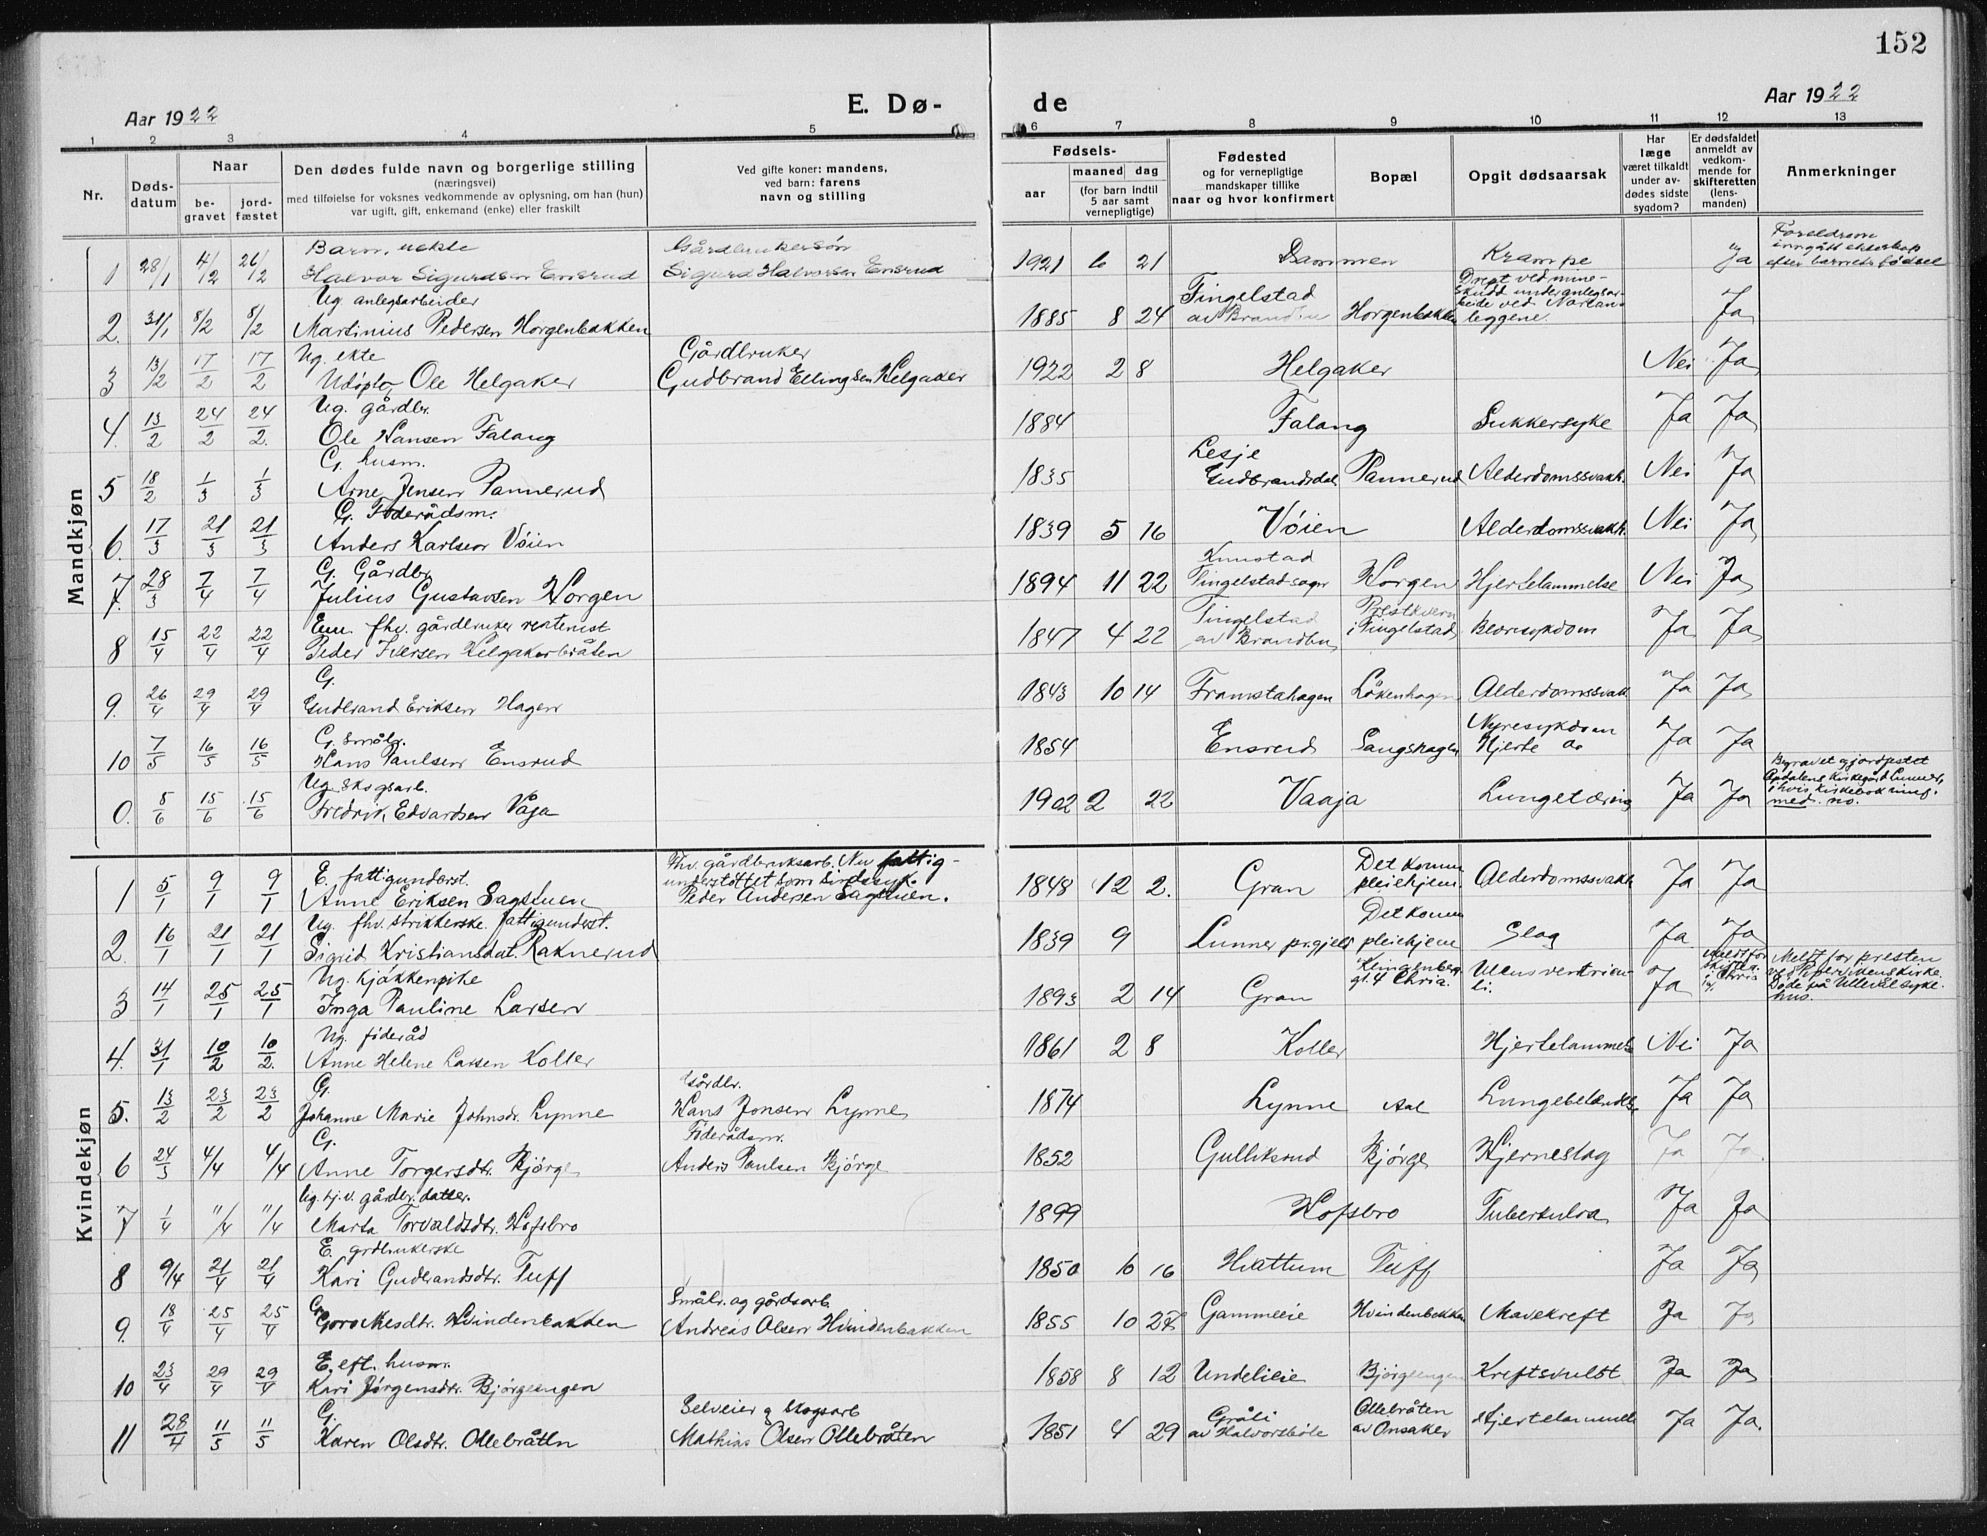 152
Aar 1922
E. Dø-
de
Aar 1922
1 2 3 4 5 6 7 8 9 10 11 12 13
Nr.
Døds-
datum
Naar
be-
gravet
jord-
fæstet
Den dødes fulde navn og borgerlige stilling
(næringsvei)
med tilføielse for voksnes vedkommende av oplysning, om han (hun)
var ugift, gift, enkemand (enke) eller fraskilt
Ved gifte koner: mandens,
ved barn: farens
navn og stilling
Fødsels-
aar
maaned dag
(for barn indtil
5 aar samt
vernepligtige)
Fødested
og for vernepligtige
mandskaper tillike
naar og hvor konfirmert
Bopæl
Opgit dødsaarsak
Har
læge
været tilkaldt
under av-
dødes sidste
sygdom?
Er dødsfaldet
anmeldt av
vedkom-
mende for
skifteretten
(lens-
manden)
Anmerkninger
Mandkjøn
Barn, uekte Gårdbrukersøn Foreldrene
inngått ekteskap
1 28/1 4/2 26/2 Halvor Sigurdsen Ensrud Sigurd Halvorsen Ensrud 1921 6 21 Dammen Krampe Ja efter barnets fødsel
Ug. anlegsarbeider Tingelstad Drept ved mine-
skudd under anlegsar-
2. 31/1 8/2 8/2 Martinius Pedersen Horgenbakken 1885 8 24 av Brandbu Horgenbakken beide ved
leggene Ja
Ug. ekte Gårdbruker
3 13/2 17/2 17/2 Udøpt Ole Helgaker Gudbrand Ellingsen Helgaker 1922 2 8 Helgaker Nei Ja
Ug. gårdbr.
4. 13/2 24/2 24/2 Ole Hansen Falang 1884 Falang Sukkersyke Ja Ja
G. husm. Lesje
5 18/2 1/3 1/3 Arne Jensen Pannerud 1835 Gudbrandsdal Pannerud Alderdomssvakh. Nei Ja
G. Føderådsm.
6. 17/3 21/3 21/3 Anders Karlsen Vøien 1839 5 16 Vøien Alderdomssvakh. Nei Ja
G. Gårdbr. Knustad
7. 28/3 7/4 7/4 Julius Gustavsen Horgen 1894 11 22 Tingelstad sogn Horgen Hjertelammelse Nei Ja
Em. fhv. gårdbruker rentenist Tingelstad Prestkvern
8 15/4 22/4 22/4 Peder Iversen Helgakerbråten 1847 4 22 av Brandbu i Tingelstad Blæresykdom Ja Ja
G.
9. 26/4 29/4 29/4 Gudbrand Eriksen Hagen 1843 10 14 Framstahagen Løkenhagen Alderdomssvakh. Ja Ja
G. Småbr. Nyresykdom
10 7/5 16/5 16/5 Hans Paulsen Ensrud 1854 Ensrud Saugshagen Hjerte Ja Ja
Ug. Skogsarb. Begravet g jordfestet
Opdalens kirkegård Lunner,
0. 5/6 15/6 15/6 Fredrik Edvardsen Vaja 1902 2 22 Vaaja Lungetæring Ja Ja i hvis kirkebok innf.
med no.
Kvindekjøn
E. fattigunderst. Fhv. gårdbruksarb. Nu fattig-
understøttet som sindssyk. Det komm.
1 5/1 9/1 9/1 Anne Eriksen Sagstuen Peder Andersen Sagstuen. 1848 12 2. Gran pleiehjem. Alderdomssvakh Ja Ja
Ug. fhv. strikkerske fattigunderst. Det komm
2. 16/1 21/1 21/1 Sigrid Kristiansdat. Raknerud 1839 9 Lunner pr.gjeld pleiehjem Slag Ja Ja
Ug. kjøkkenpike Klingenberg Ulcus ventricu- Meldt for Meldt for presten
3 14/1 25/1 25/1 Inga Pauline Larsen 1893 2 14 Gran gt. 4 Chria. li. Ja skifter. i Chria ved Pipervikens kirke.
Døde på Ullevål syke-
hus.
Ug. føderåd
4. 31/1 10/2 10/2. Anne Helene Larsen Koller 1861 2 8 Koller Hjertelammelse Nei Ja
G. Gårdbr.
5. 13/2 23/2 23/2 Johanne Marie Johnsdr. Lynne Hans Jonsen Lynne 1874 Lynne Aal Lungebetændelse Ja Ja
G. Føderådsm.
6 24/3 4/4 4/4 Anne Torgersdtr. Bjørge Anders Paulsen Bjørge 1852 Gulliksrud Bjørge Hjerneslag Ja Ja.
Ug. hj.v. gårdbr. datter.
7 1/4 11/4 11/4 Marta Torvaldsdtr. Hofsbro 1899 Hofsbro Tuberkulose Ja Ja
E. grdbrukerske
8 9/4 21/4 21/4 Kari Gudbrandsdtr. Tuff 1850 10 16 Hvattum Tuff Ja Ja
G. Småbr. og gårdsarb.
9. 18/4 25/4 25/4 Goro Hvindenbakken Andreas Olsen Hvindenbakken 1855 10 27 Gammeleie Hvindenbakken Mavekreft Ja Ja
E. eft. husm.
10 23/4 29/4 29/4 Kari Jørgensdtr. Bjørgeengen 1858 8 12 Undelieie Bjørgeengen Kreftsvulst Ja Ja
G. Selveier g skogsarb Gråli Ollebråten
11 28/4 11/5 11/5 Karen Olsdtr. Ollebråten Mathias Olsen Ollebråten 1851 4 29 av Halvorsbøle av Onsaker Hjertelammelse Ja Ja.